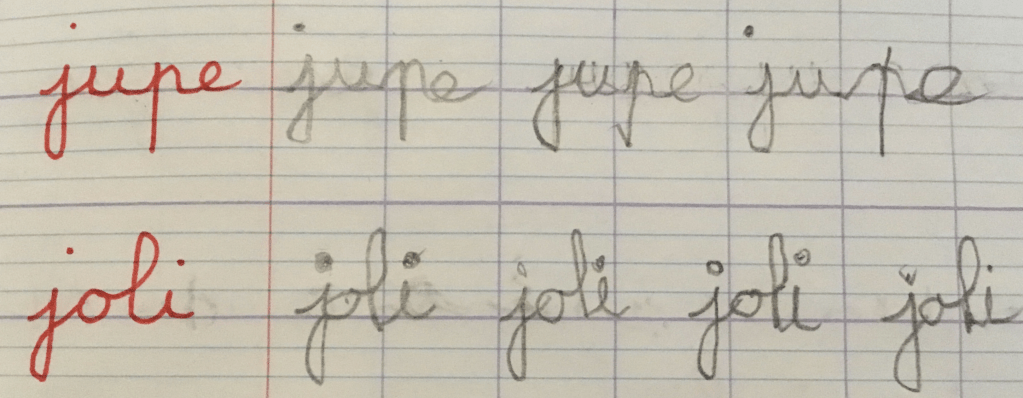 jupe jupe jupe jupe
joli joli joli joli joli